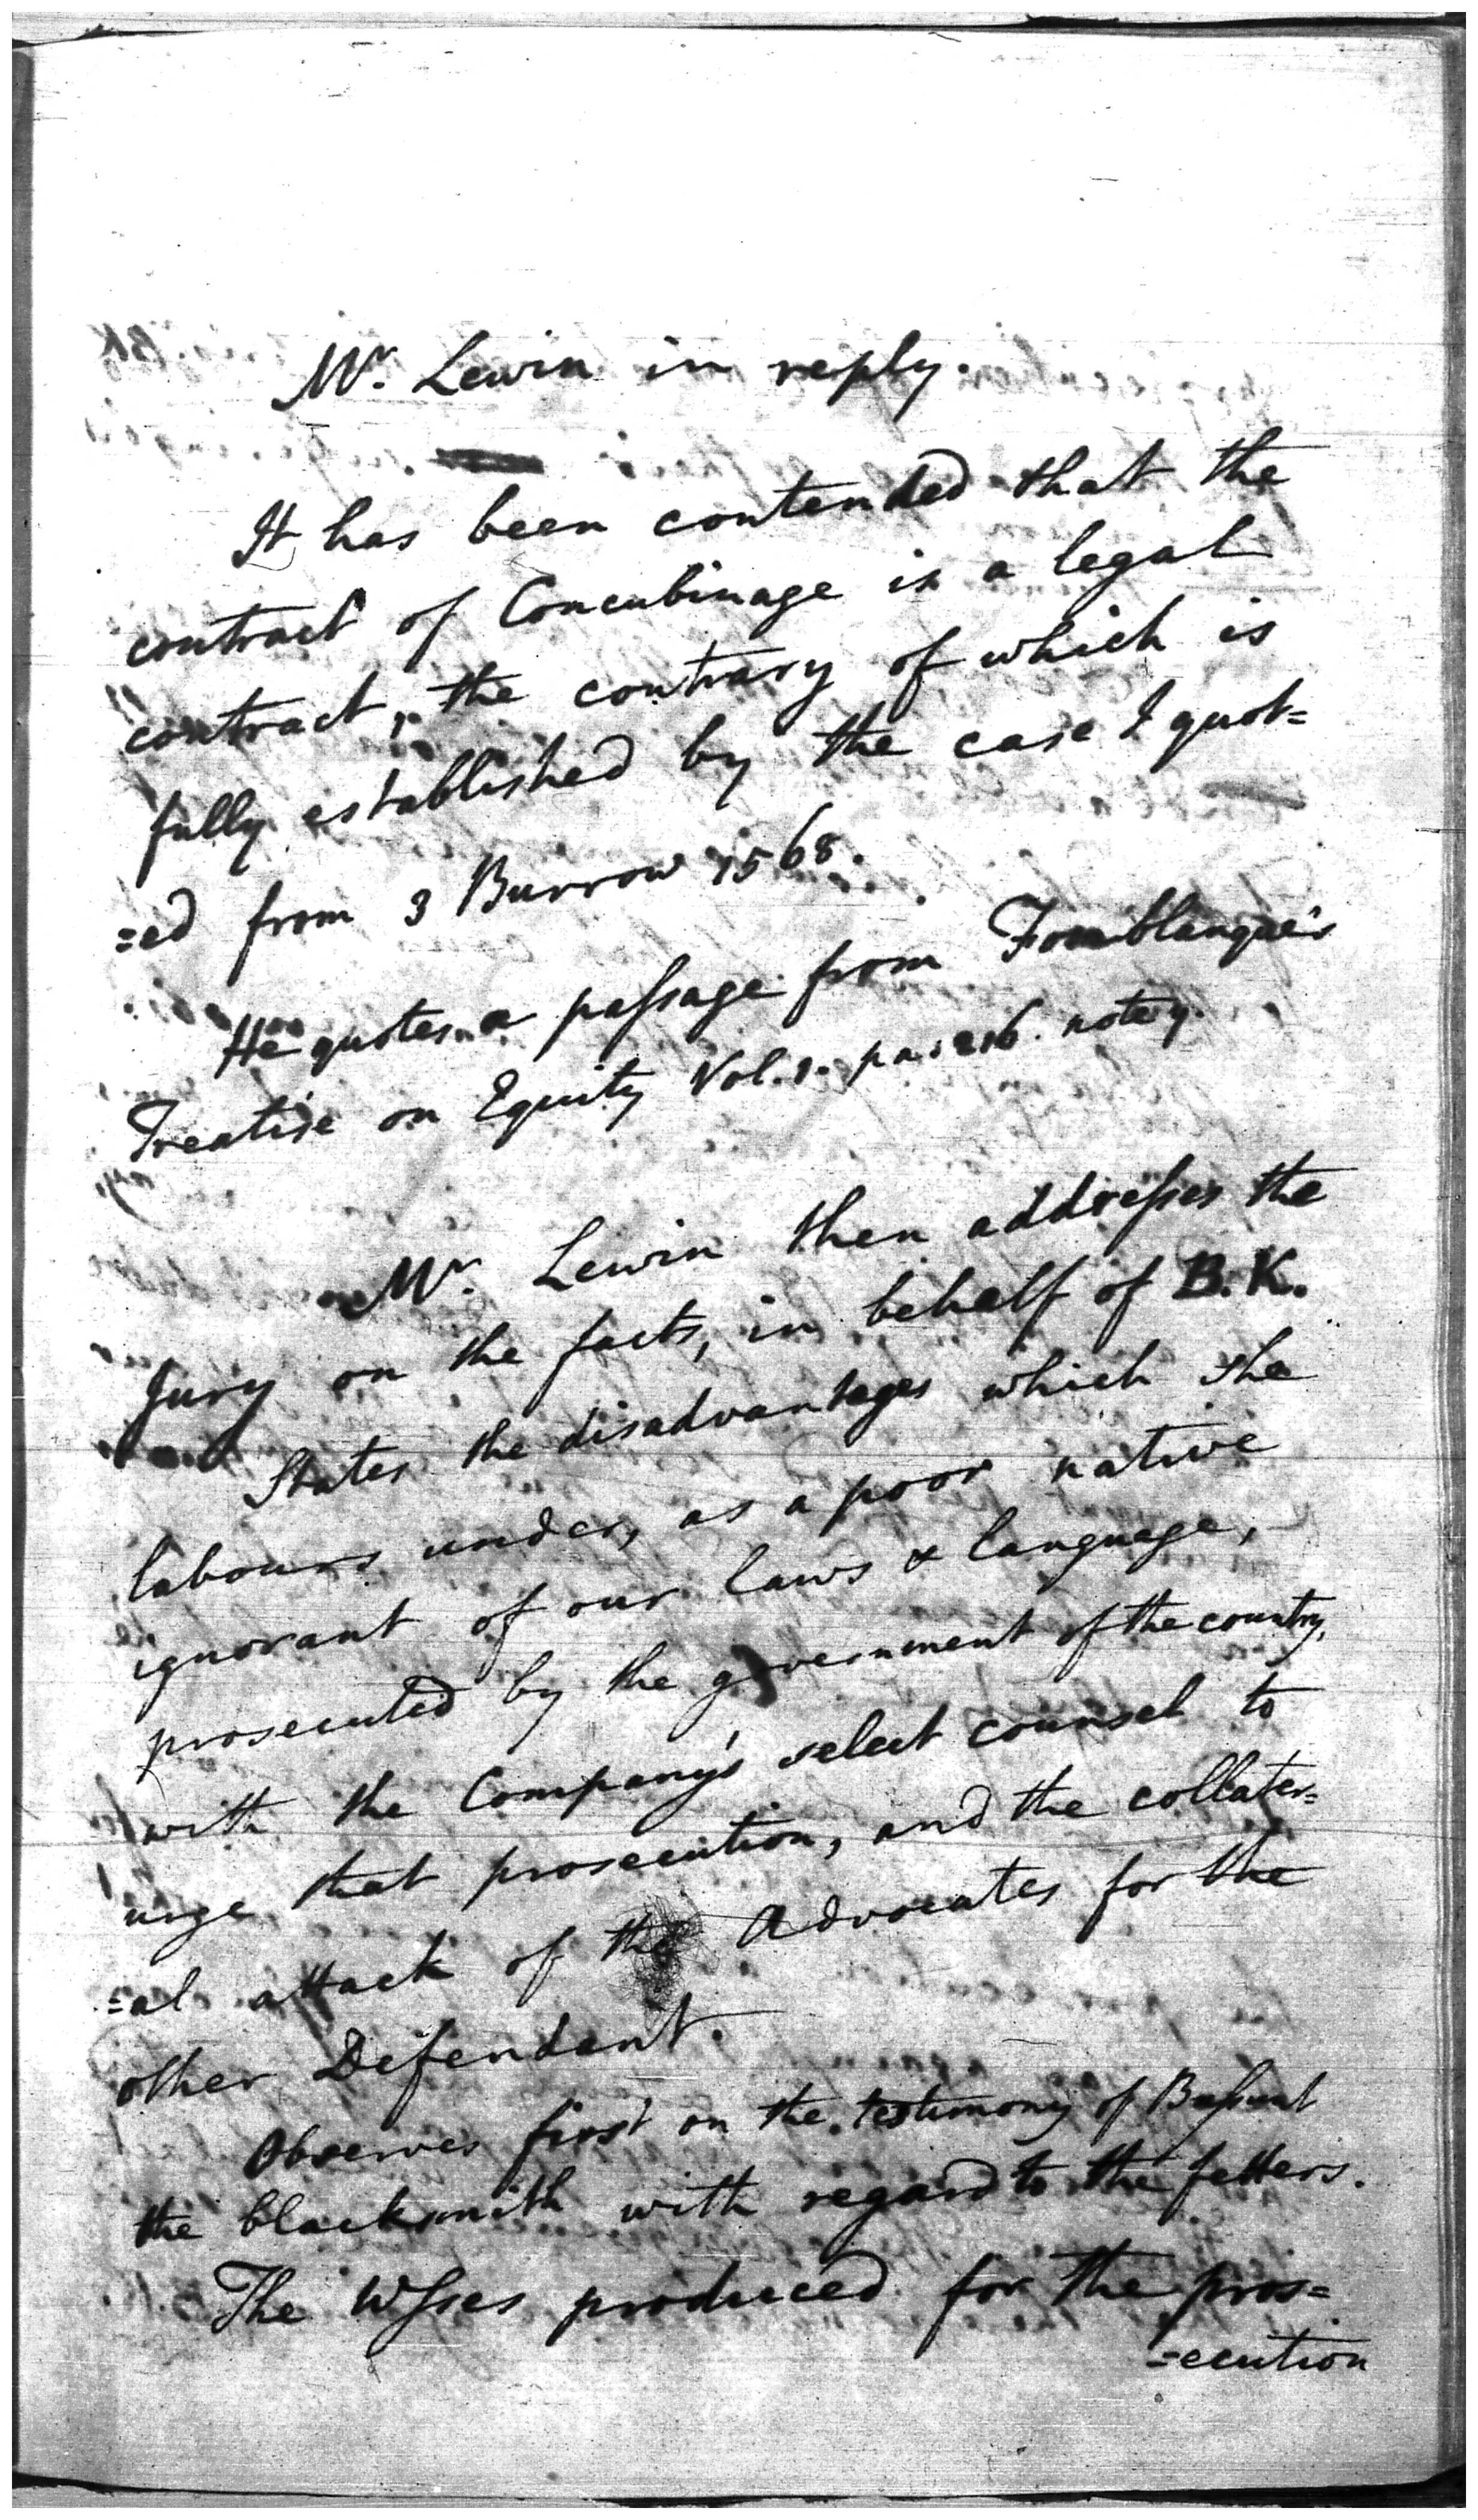 Mr. Lewin in reply.
It has been contended that the
contract of Concubinage is a legal
contract, the contrary of which is
fully established by the case I quot=
=ed from 3 Burrow 1568.
He quotes a passage from Fonblanque's
Treatise on Equity Vol. 1. pa. 216. note y.
Mr. Lewin then addresses the
Jury on the facts, in behalf of B. K.
States the disadvantages which she
labours under, as a poor native
ignorant of our laws & language,
prosecuted by the government of the country,
with the Company's select counsel to
urge that prosecution, and the collater=
=al attack of the Advocates for the
other Defendent.
Observes first on the testimony of
the blacksmith with regard to the fetters.
The Wsses produced for the pros=
=ecution